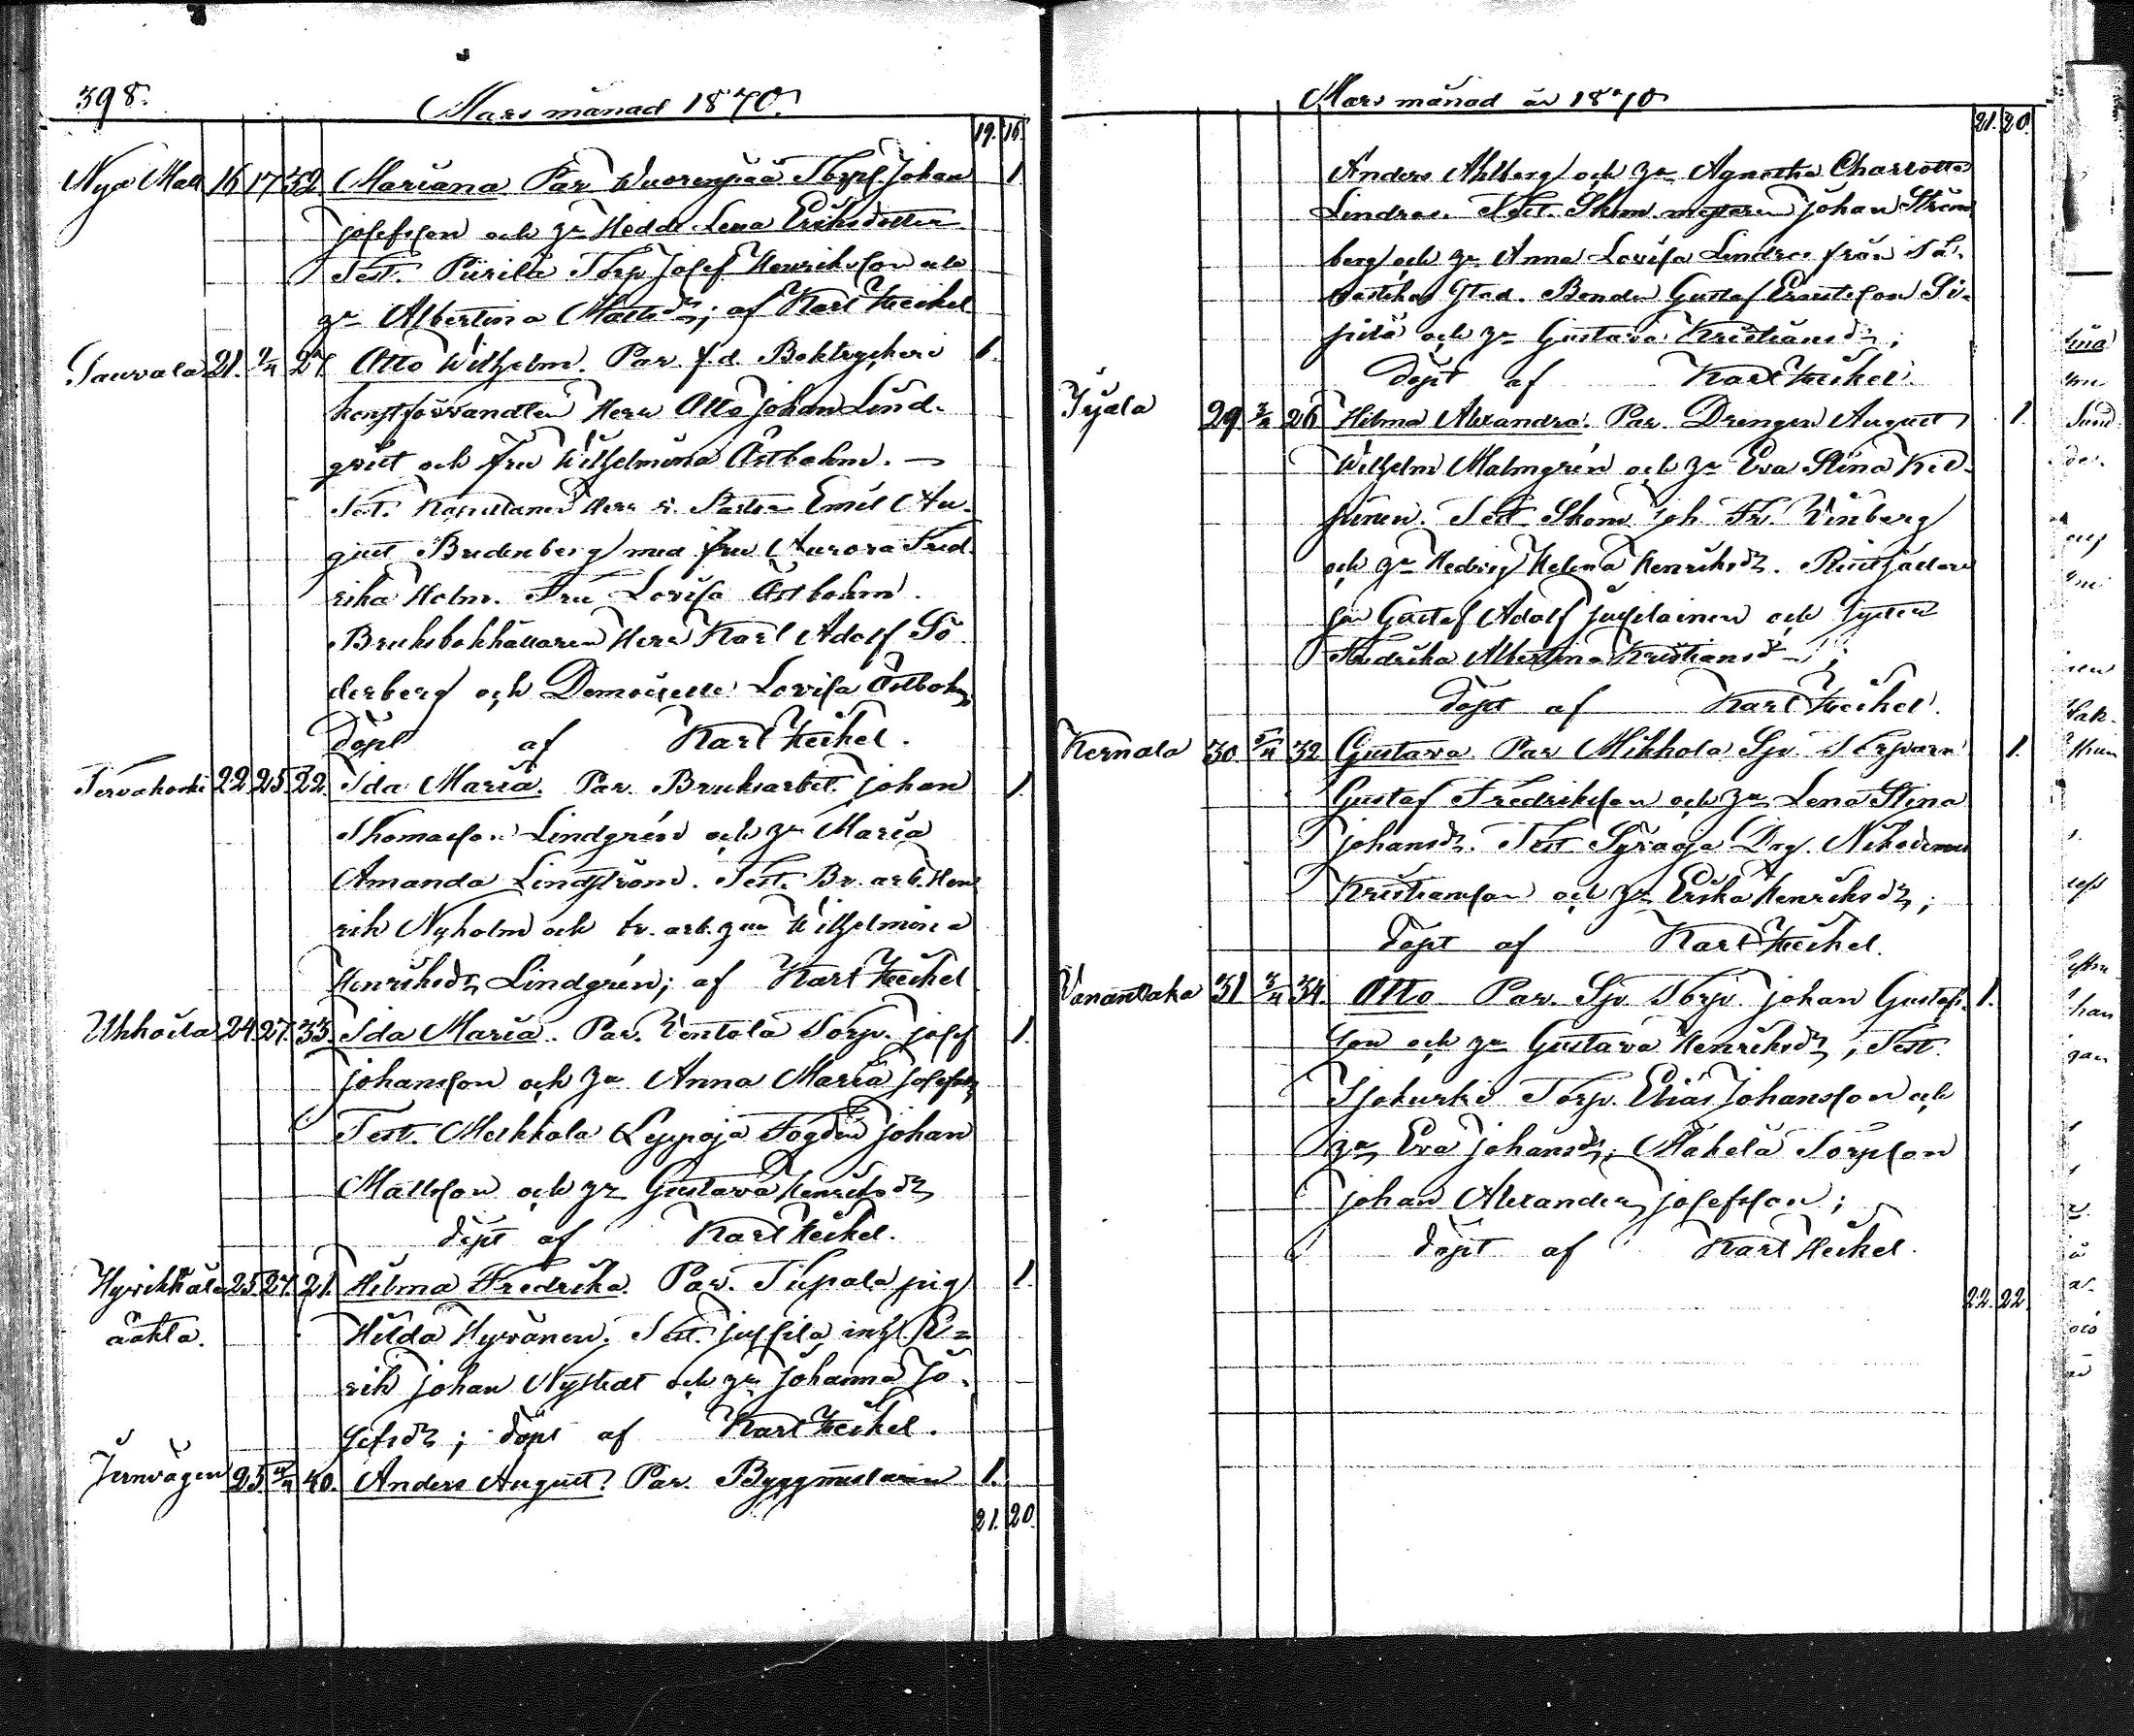 398.
Mars månad 1870.
19. 16.
Nya Mall 16 17 32 Mariana Par Wuorenpää Torp. Johan 1
Josefsson och hu Hedda Lena Eriksdotter
Test. Piirilä Torp Josef Henriksson och
hu Albertina Mattsdr; af Karl Heikel
Saurala 21. 2/4 27 Otto Wilhelm. Par. f.d. Boktryckeri 1.
konstförvandten Herr Otto Johan Lind-
qvist och fru Wilhelmina Östbohm. —
Test. Kapellanen Herr Emil Au-
gust Bredenberg med fru Aurora Fred
rika Holm. Fru Lovisa Östbohm.
Bruksbokhållaren Herr Karl Adolf Sö
derberg och Demoiselle Lovisa Östbohm
döpt af Karl Heikel.
Tervakoski 22 25 22. Ida Maria. Par. Bruksarbet. Johan 1.
Thomasson Lindgrén och hu Maria
Amanda Lindström. Test. Br. arb. Hen
rik Nyholm och br. arb. hu Wilhelmina
Henriksdr Lindgrén; af Karl Heikel
Uhkoila 24. 27. 33. Ida Maria. Par. Ventola Torp. Josef 1.
Johansson och hu Anna Maria Josefsdr
Test. Meikkala Leppoja Fogden Johan
Mattsson och hu Gustava Henriksdr
döpt af Karl Heikel.
Hyvikkälä 25 27. 21. Hilma Fredrika. Par. Tupala pig 1.
äähtä. Hilda Hyvönen. Test. Jussila inh. E-
rik Johan Nystedt och hu Johanna Jo-
sefsdr; döpt af Karl Heikel.
Jernvägen 25 40. Anders August. Par. Byggmästaren 1.
21. 20.
Mars månad år 1870
21. 20.
Anders Ahlberg och hu Agnetha Charlotta
Lindros. Test. Skom. mästaren Johan Ström
berg och hu Anna Lovisa Lindros från Ta-
vastehus Stad. Bonden Gustaf Ernstsson Si-
pilä och hu Gustava Kristiansdr;
döpt af Karl Heikel.
29 26 Hilma Alexandra. Par. Drengen August 1.
Wilhelm Malmgrén och hu Eva Stina Kil-
punen. Test Skom. Joh. Fr. Winberg
och hu Hedvig Helena Henriksdr.
son Gustaf Adolf och syster
Fredrika Albertina Kristiansdr;
döpt af Karl Heikel.
Kernala 30. 5/4 32 Gustava Par Mikkola Sjv. Torparn 1.
Gustaf Fredriksson och hu Lena Stina
Johansdr. Test Syräoja Drg. Nikodemus
Kristiansson och hu Erika Henriksdr;
döpt af Karl Heikel.
Vanantaka 31 3/4 34. Otto Par. Sjv Torp. Johan Gustafs- 1.
son och hu Gustava Henriksdr; Test.
Torp. Elias Johansson och
hu Eva Johansdr; Mäkelä Torpson
Johan Alexander Josefsson;
döpt af Karl Heikel.
22. 22.